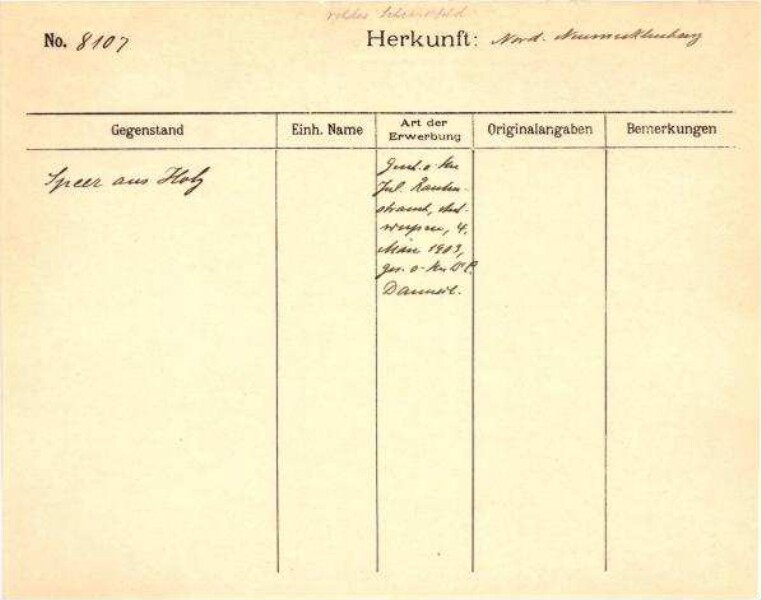 No. 8107
Herkunft: Nord. Neumecklenburg
Gegenstand
Einh. Name
Art der Erwerbung
Originalangaben
Bemerkungen
Speer aus Holz
Jul. Rauten-
strauch, Ant-
werpen, 4.
März 1903,
ges. v. Hn Dr P.